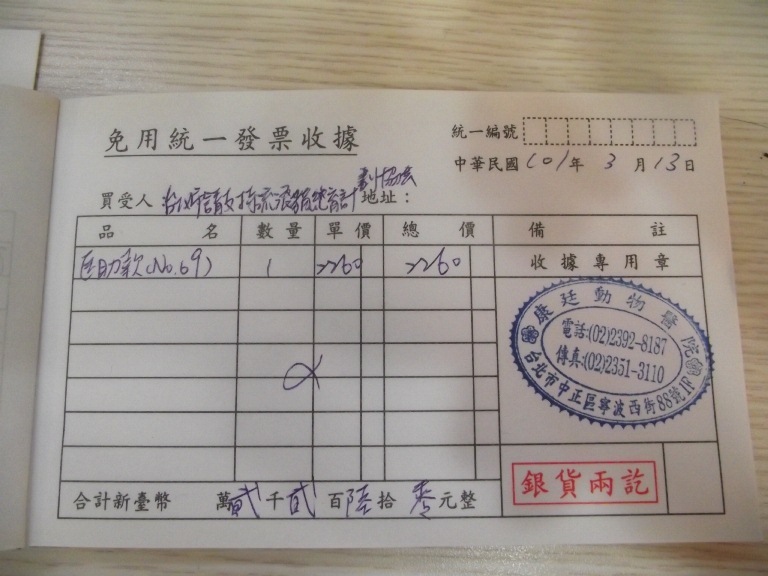 免用統一發票收據
統一編號
中華民國 101年 3 月 13 日
買受人 支持流浪貓絕育計劃協會 地址：
品 名 數 量 單 價 總 價 備 註
醫助款(No.69) 1 2260 2260 收據專用章
康廷動物醫院
電話:(02)2392-8187
傳真:(02)2351-3110
台北市中正區寧波西街88號1F
合計新臺幣 萬 貳 千 貳 百 陸 拾 零 元整
銀貨兩訖